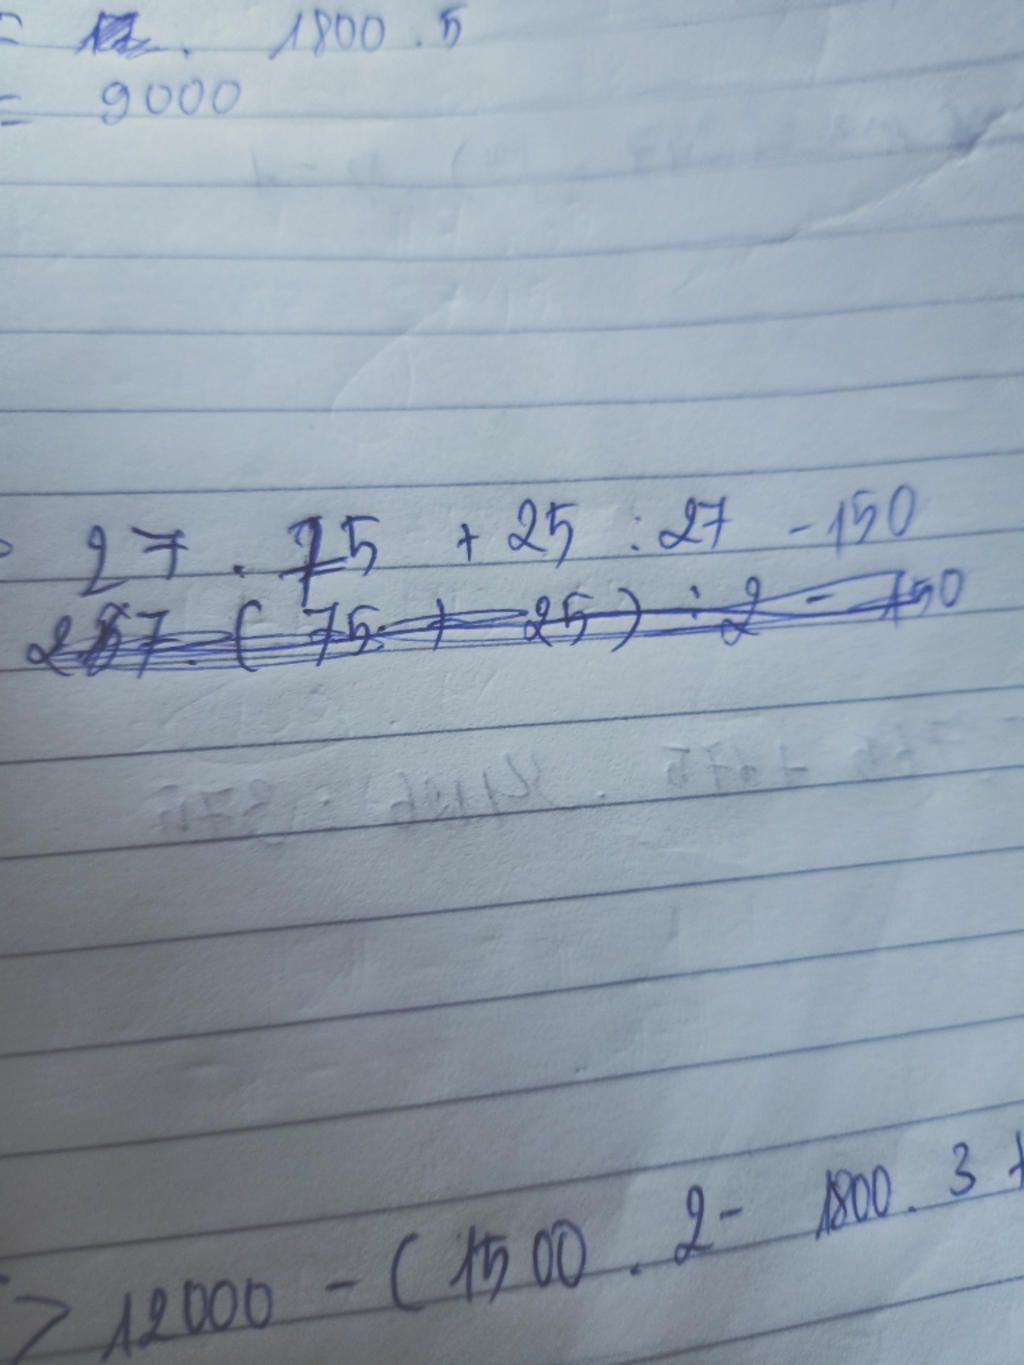 = . 1800 . 5
= 9000
27 . 75 + 25 : 27 - 150
287 . ( 75 + 25 ) : 2 - 150
> 12000 - ( 1500 . 2 - 1800 . 3 +